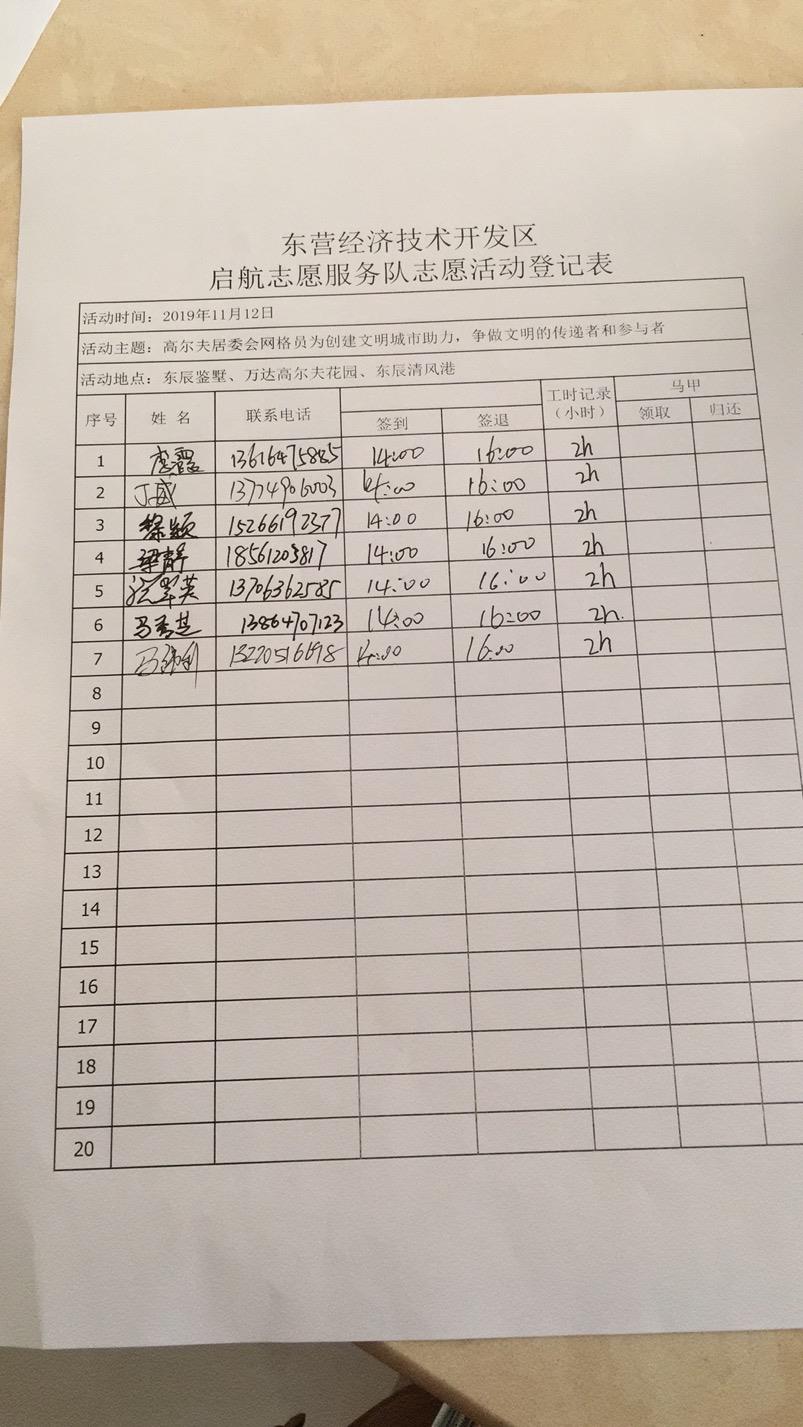 东营经济技术开发区
启航志愿服务队志愿活动登记表
活动时间：2019年11月12日
活动主题：高尔夫居委会网格员为创建文明城市助力，争做文明的传递者和参与者
活动地点：东辰鉴墅、万达高尔夫花园、东辰清风港
序号 姓 名 联系电话 签到 签退 工时记录（小时） 马甲 领取 归还
1 13616475885 14:00 16:00 2h
2 丁威 14:00 16:00 2h
3 15266192377 14:00 16:00 2h
4 梁静 18561205817 14:00 16:00 2h
5 翠英 13706362585 14:00 16:00 2h
6 马秀芝 13864707123 14:00 16:00 2h.
7 14:00 16:00 2h
8
9
10
11
12
13
14
15
16
17
18
19
20